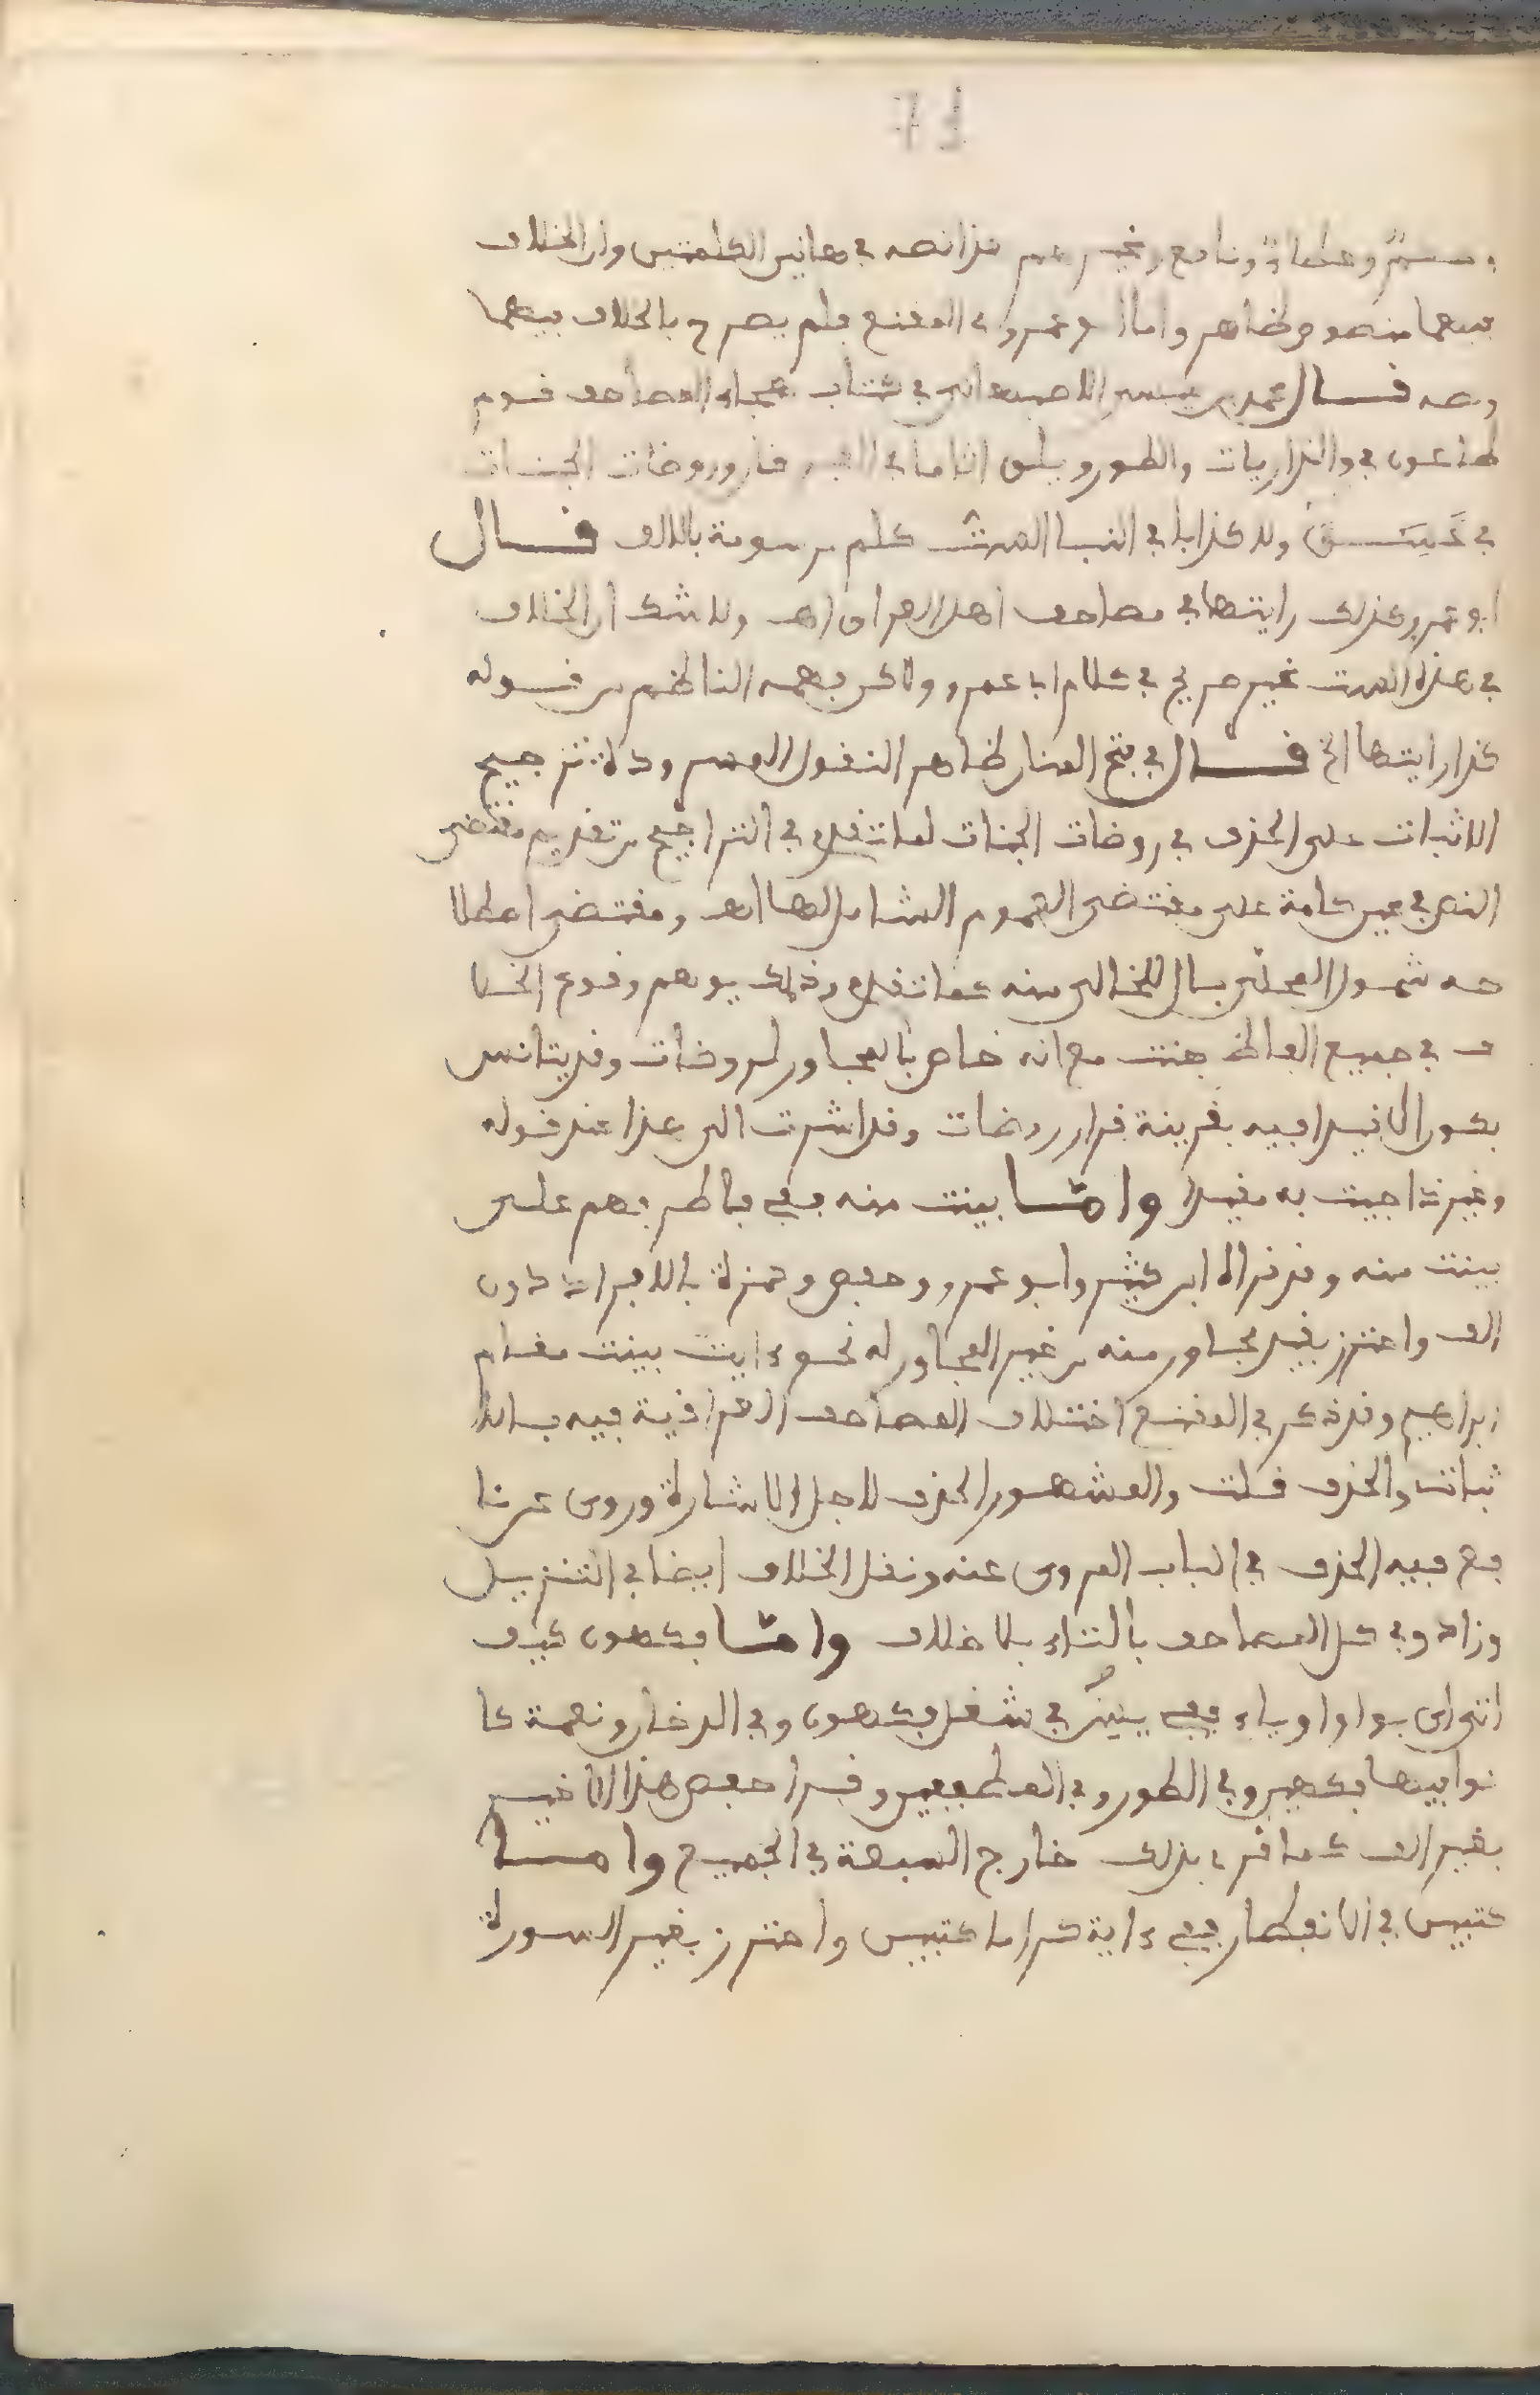 وحكم وعطاء ونافع وغيرهم هذا نصه في هاتين الكلمتين وان الخلاف
فيهما منصوص لظاهر واما ابو عمرو في المقنع فلم يصرح بالخلاف فيهما
ونصه قال محمد بن عيسى الاصبهاني في كتاب هجاء المصاحف قوم
طاغون في والذاريات والطور ويلق اثاما في الفرقان وروضات الجنات
في عسق ولا كذابا في النبا المرت كلم مرسومة بالالف قال
ابو عمرو كذلك رايتها في مصاحف اهل العراق اهـ ولا شك ان الخلاف
في هذه المرت غير صريح في كلام ابي عمرو ولاكن فهمه الناظم من قوله
كذا رايتها الخ قال في فتح المنان ظاهر النقول المسرودة ترجيح
الاثبات على الحذف في روضات الجنات لما تقدم في التراجيح من تقديم مقتضى
النص في عين كلمة على مقتضى العموم الشامل لها اهـ ومقتضى اصطلا
حه شمول المحلى بال للخالي منه كما تقدم وذلك يوهم وقوع الخلا
ف في جميع الفاظ جنت مع انه خاص بالمجاور لروضات وقد يتانس
بكون الا قيدا فيه بقرينة قران روضات وقد اشرت الى هذا عند قوله
وغير ذا جيت به مقيدا واما بينت منه ففي فاطر فهم على
بينت منه وقد قراه ابن كثير وابو عمرو وحفص وحمزة بالافراد دون
الف واحترز بقيد مجاور منه من غير المجاور له نحو ءايت بينت مقام
ابراهيم وقد ذكر في المقنع اختلاف المصاحف العراقية فيه بالا
ثبات والحذف قلت والمشهور الحذف لاجل الاشارة وروى عن نا
فع فيه الحذف في الباب المروى عنه ونقل الخلاف ايضا في التنزيل
وزاد وفي كل المصاحف بالتاء بلا خلاف واما فكهون كيف
اتى اى بواو او ياء ففي يس في شغل فكهون وفي الدخان ونعمة كا
نوا فيها فكهين وفي الطور وفي المطففين وقرا حفص هذا الاخير
بغير الف كما قرئ بذلك خارج السبعة في الجميع واما
كتبين في الانفطار ففي ءاية كراما كتبين واحترز بقيد السورة